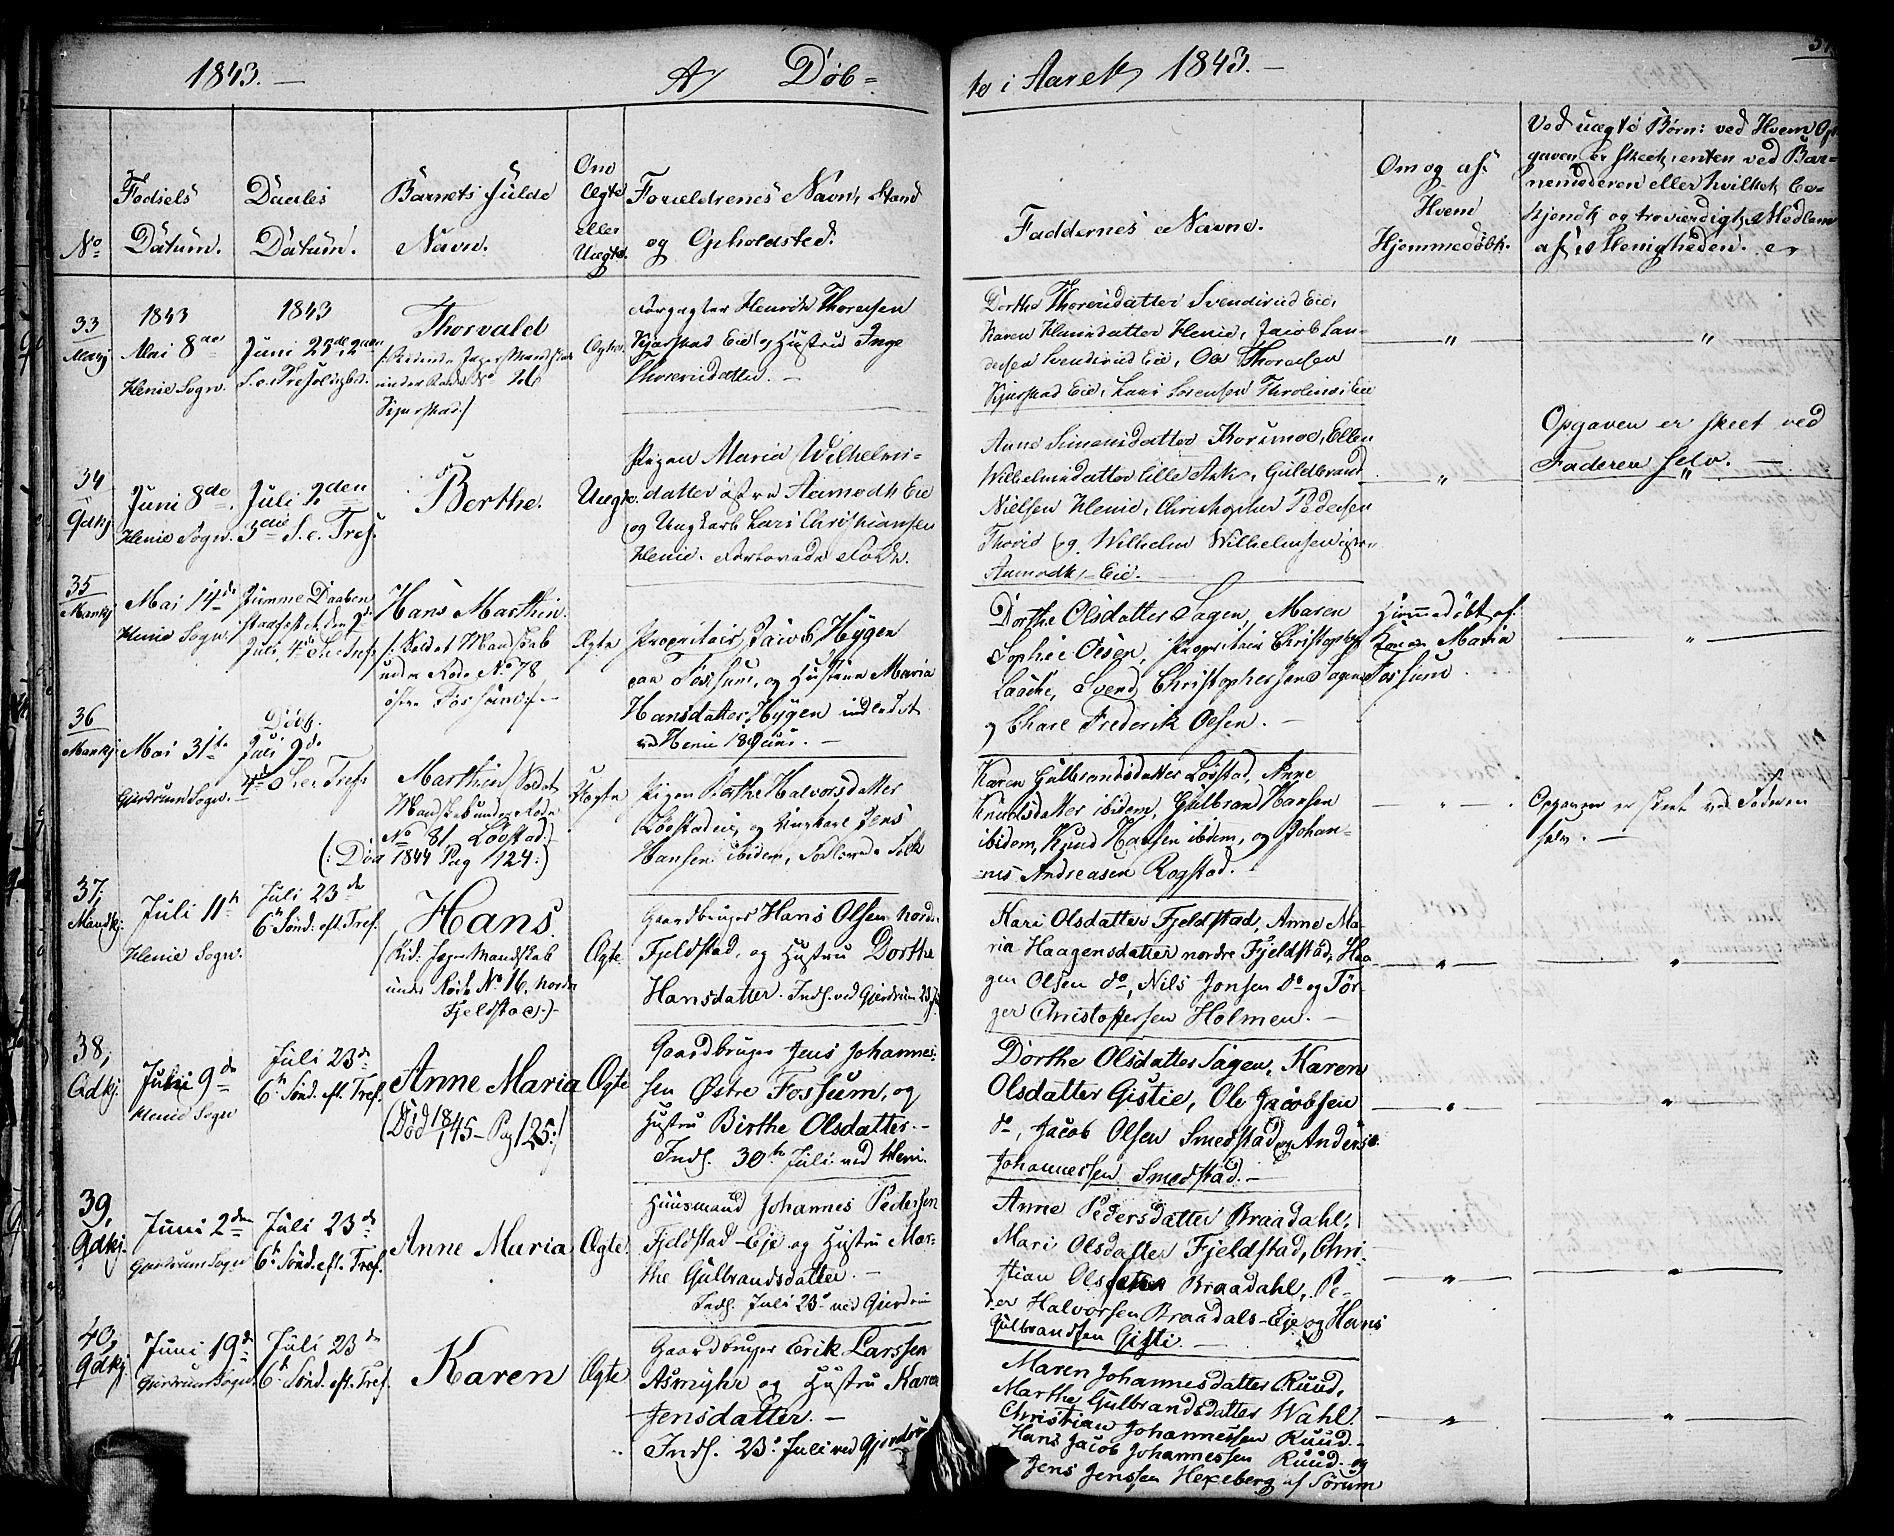 1843. — A/ Døb-
te i Aaret 1843. —
No
Fødsels Datum.
Daabs Datum.
Barnets fulde Navn.
Om Ægte eller Uægte.
Forældrenes Navn, Stand og Opholdsted.
Faddernes Navne.
Om og af Hvem Hjemmedøbt.
Ved uægte Børn: ved Hvem Op-
gaven er skeet, enten ved Bar-
nemoderen eller hvilket be-
kjendt og troværdigt Medlem
af Menigheden.
33
1843
Mai 8de
Henie Sogn.
1843
Juni 25de
Thorvald
Ægte.
Henrik Thoresen
Kjærstad Eie og Hustru Inge
Thoresdatter. —
Dorthe Thoresdatter Svendsrud Eie,
Karen Henrie, Jacob Lan-
Svendsrud Eie, Ole Thoresen
Kjærstad Eie, Lars Sørensen
34
Qdkj
Juni 8de.
Henie Sogn.
Juli 2den
3die S. e. Tref.
Berthe.
Uægte.
Pigen Maria Wilhelms-
datter østre Aamodt Eie
og Ungkarl Lars Christiansen
Henie. Forlovede Folk.
Anne Simensdatter Korsmoe, Ellen
Wilhelmsdatter Lille Ask, Guldbrand
Nielsen Henie, Christopher Pedersen
og Wilhelm Wilhelmsen
Aamodt-Eie.
Opgaven er skeet ved
Faderen selv. —
35
Mankj
Mai 14de
Henie Sogn.
Hans Marthin.
Mandskab
under Rode No. 78
østre Fossum
Ægte
Proprietair Jacob Hygen
paa Fossum, og Hustrue Maria
Hansdatter Hygen indledet
ved Henie 18 Juni. —
Dorthe Olsdatter Sagen, Maren
Sophie Olsen, Proprietair Christopher
Laache, Svend Christophersen Sagen
og Chare Frederik Olsen. —
Hjemmedøbt af
Konen Maria
Fossum
36
Mankj
Mai 31te
Gjerdrum Sogn.
Døbt
Juli 9de
4de S. e. Tref.
Marthin
Mandskab under Rode
No 81 Løvstad
(: Død 1844 Pag 124 :)
Uægte
Pigen Berthe Halvorsdatter
Løvstadeie, og Ungkarl Jens
Hansen ibidem, Forlovede Folk
Karen Gulbrandsdatter Løvstad, Anne
Knudsdatter ibidem, Gulbrand Hansen
ibidem, Knud Hansen ibidem, og Johan-
nes Andreasen Rogstad.
Opgaven er skeet ved Faderen
selv. —
37,
Mandkj.
Juli 11te
Henie Sogn.
Juli 23de
6te Sønd. eft. Tref.
Hans.
(Rid. Jæger Mandskab
under Rode No 16, nordre
Fjeldstad.)
Ægte.
Gaardbruger Hans Olsen nordre
Fjeldstad, og Hustru Dorthe
Hansdatter. Indl. ved Gjerdrum 23 Jul.
Kari Olsdatter Fjeldstad, Anne Ma-
ria Haagensdatter nordre Fjeldstad, Haa-
gen Olsen do, Nils Jonsen do og Tør-
ger Christoffersen Holmen. —
38,
Qdkj.
Juli 9de
Henie Sogn
Juli 23de
6te Sønd. eft. Tref.
Anne Maria
(Død 1845 - Pag 125:)
Ægte
Gaardbruger Jens Johannes-
sen Østre Fossum, og
Hustru Birthe Olsdatter. —
Indl. 30te Juli ved Heni.
Dorthe Olsdatter Sagen, Karen
Olsdatter Gistie, Ole Jacobsen
do, Jacob Olsen Smedstad og Anders
Johannessen Smedstad. —
39,
Qdkj.
Juni 2den
Gjerdrum Sogn
Juli 23de
6te Sønd. eft. Tref.
Anne Maria
Ægte.
Huusmand Johannes Pedersen
Fjeldstad-Eje og Hustru Mar-
the Gulbrandsdatter. —
Indl. Juli 23de ved Gjerdrum
Anne Pedersdatter Braadahl,
Mari Olsdatter Fjeldstad, Chri-
stian Olsen Braadahl, Pe-
der Halvorsen Braadals-Eje og Hans
Gulbrandsen Gisti. —
40,
Qdkj.
Juni 19de
Gjerdrum Sogn.
Juli 23de
6te Sønd. eft. Tref.
Karen
Ægte
Gaardbruger Erik Larssen
Asmyhr og Hustru Karen
Jensdatter. —
Indl. 23de Juli ved Gjerdrum
Maren Johannesdatter Ruud,
Marthe Gulbrandsdatter Wahl,
Christian Johannessen Ruud
Hans Jacob Johannessen Ruud og
Jens Jenssen Hexeberg af Sørum